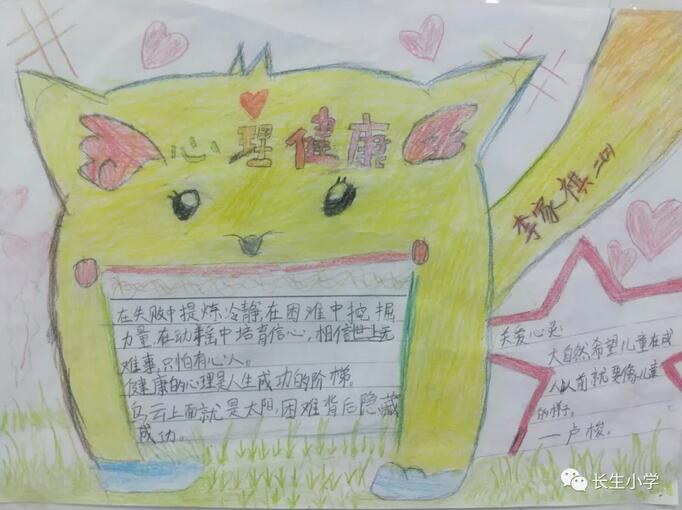 心理健康
李家祺 二(4)
在失败中提炼冷静,在困难中挖掘
力量,在动摇中培育信心,相信世上无
难事,只怕有心人。
健康的心理是人生成功的阶梯。
乌云上面就是太阳,困难背后隐藏
成功。
关爱心灵:
大自然希望儿童在成
人以前就要像儿童
的样子。
——卢梭。
长生小学